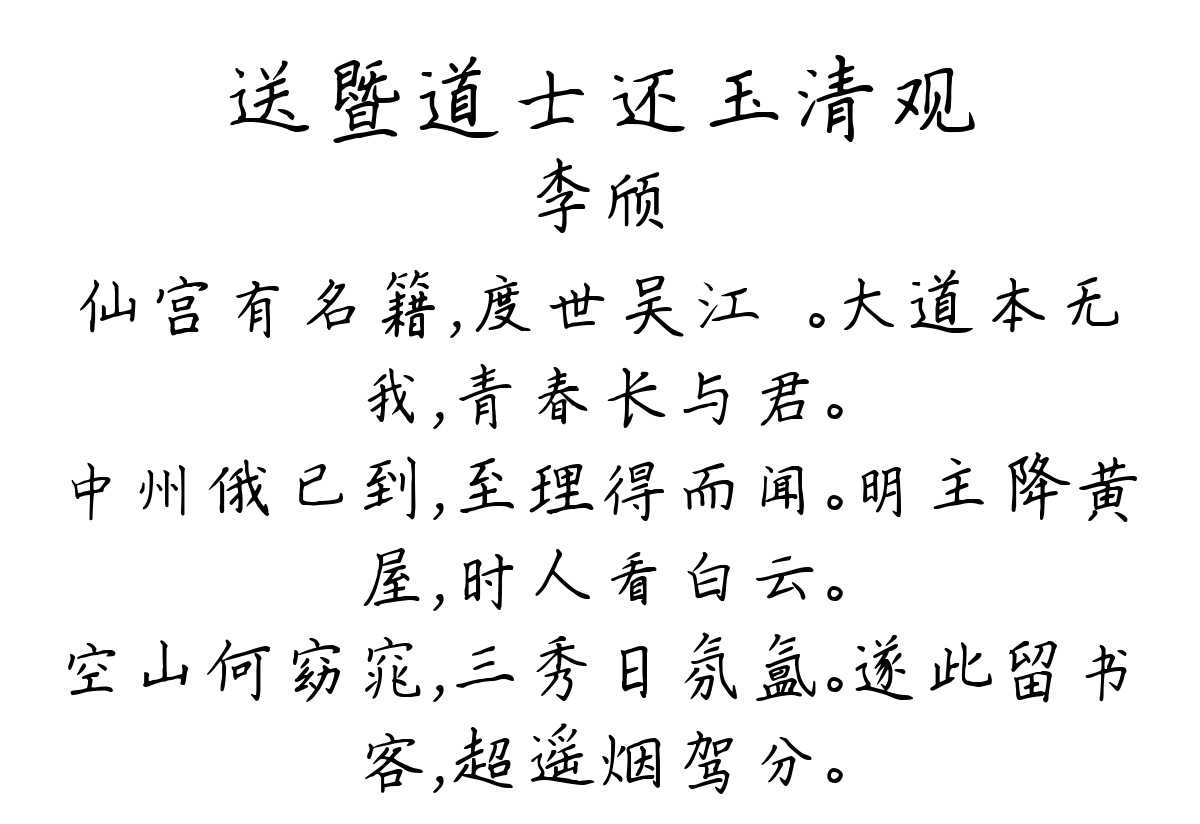 送暨道士还玉清观
李颀
仙宫有名籍,度世吴江 。大道本无
我,青春长与君。
中州俄已到,至理得而闻。明主降黄
屋,时人看白云。
空山何窈窕,三秀日氛氲。遂此留书
客,超遥烟驾分。